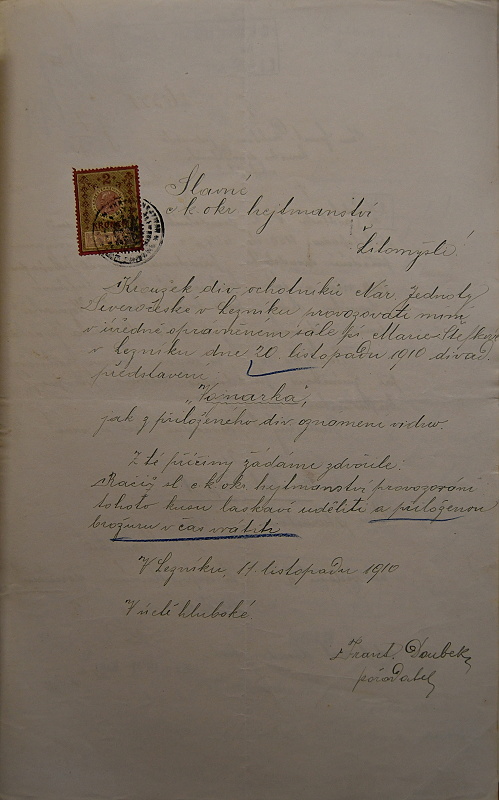 2
Slavné
c k okr hejtmanství
Litomyšl!
Kroužek div. ochotníků Nár. Jednoty
Severočeské v Lezníku provozovati
v úředně oprávněném sále Marie
v Lezníku dne 20. listopadu 1910 divad.
představení
„Vojnarka",
jak z přiloženého div. oznámení vidno.
Z té příčiny žádáme zdvořile:
Račiž sl. c k okr hejtmanství provozování
tohoto kusu laskavě uděliti a přiloženou
brožuru v čas vrátiti.
V Lezníku, 11. listopadu 1910
V úctě hluboké
Frant. Doubek
pořadatel